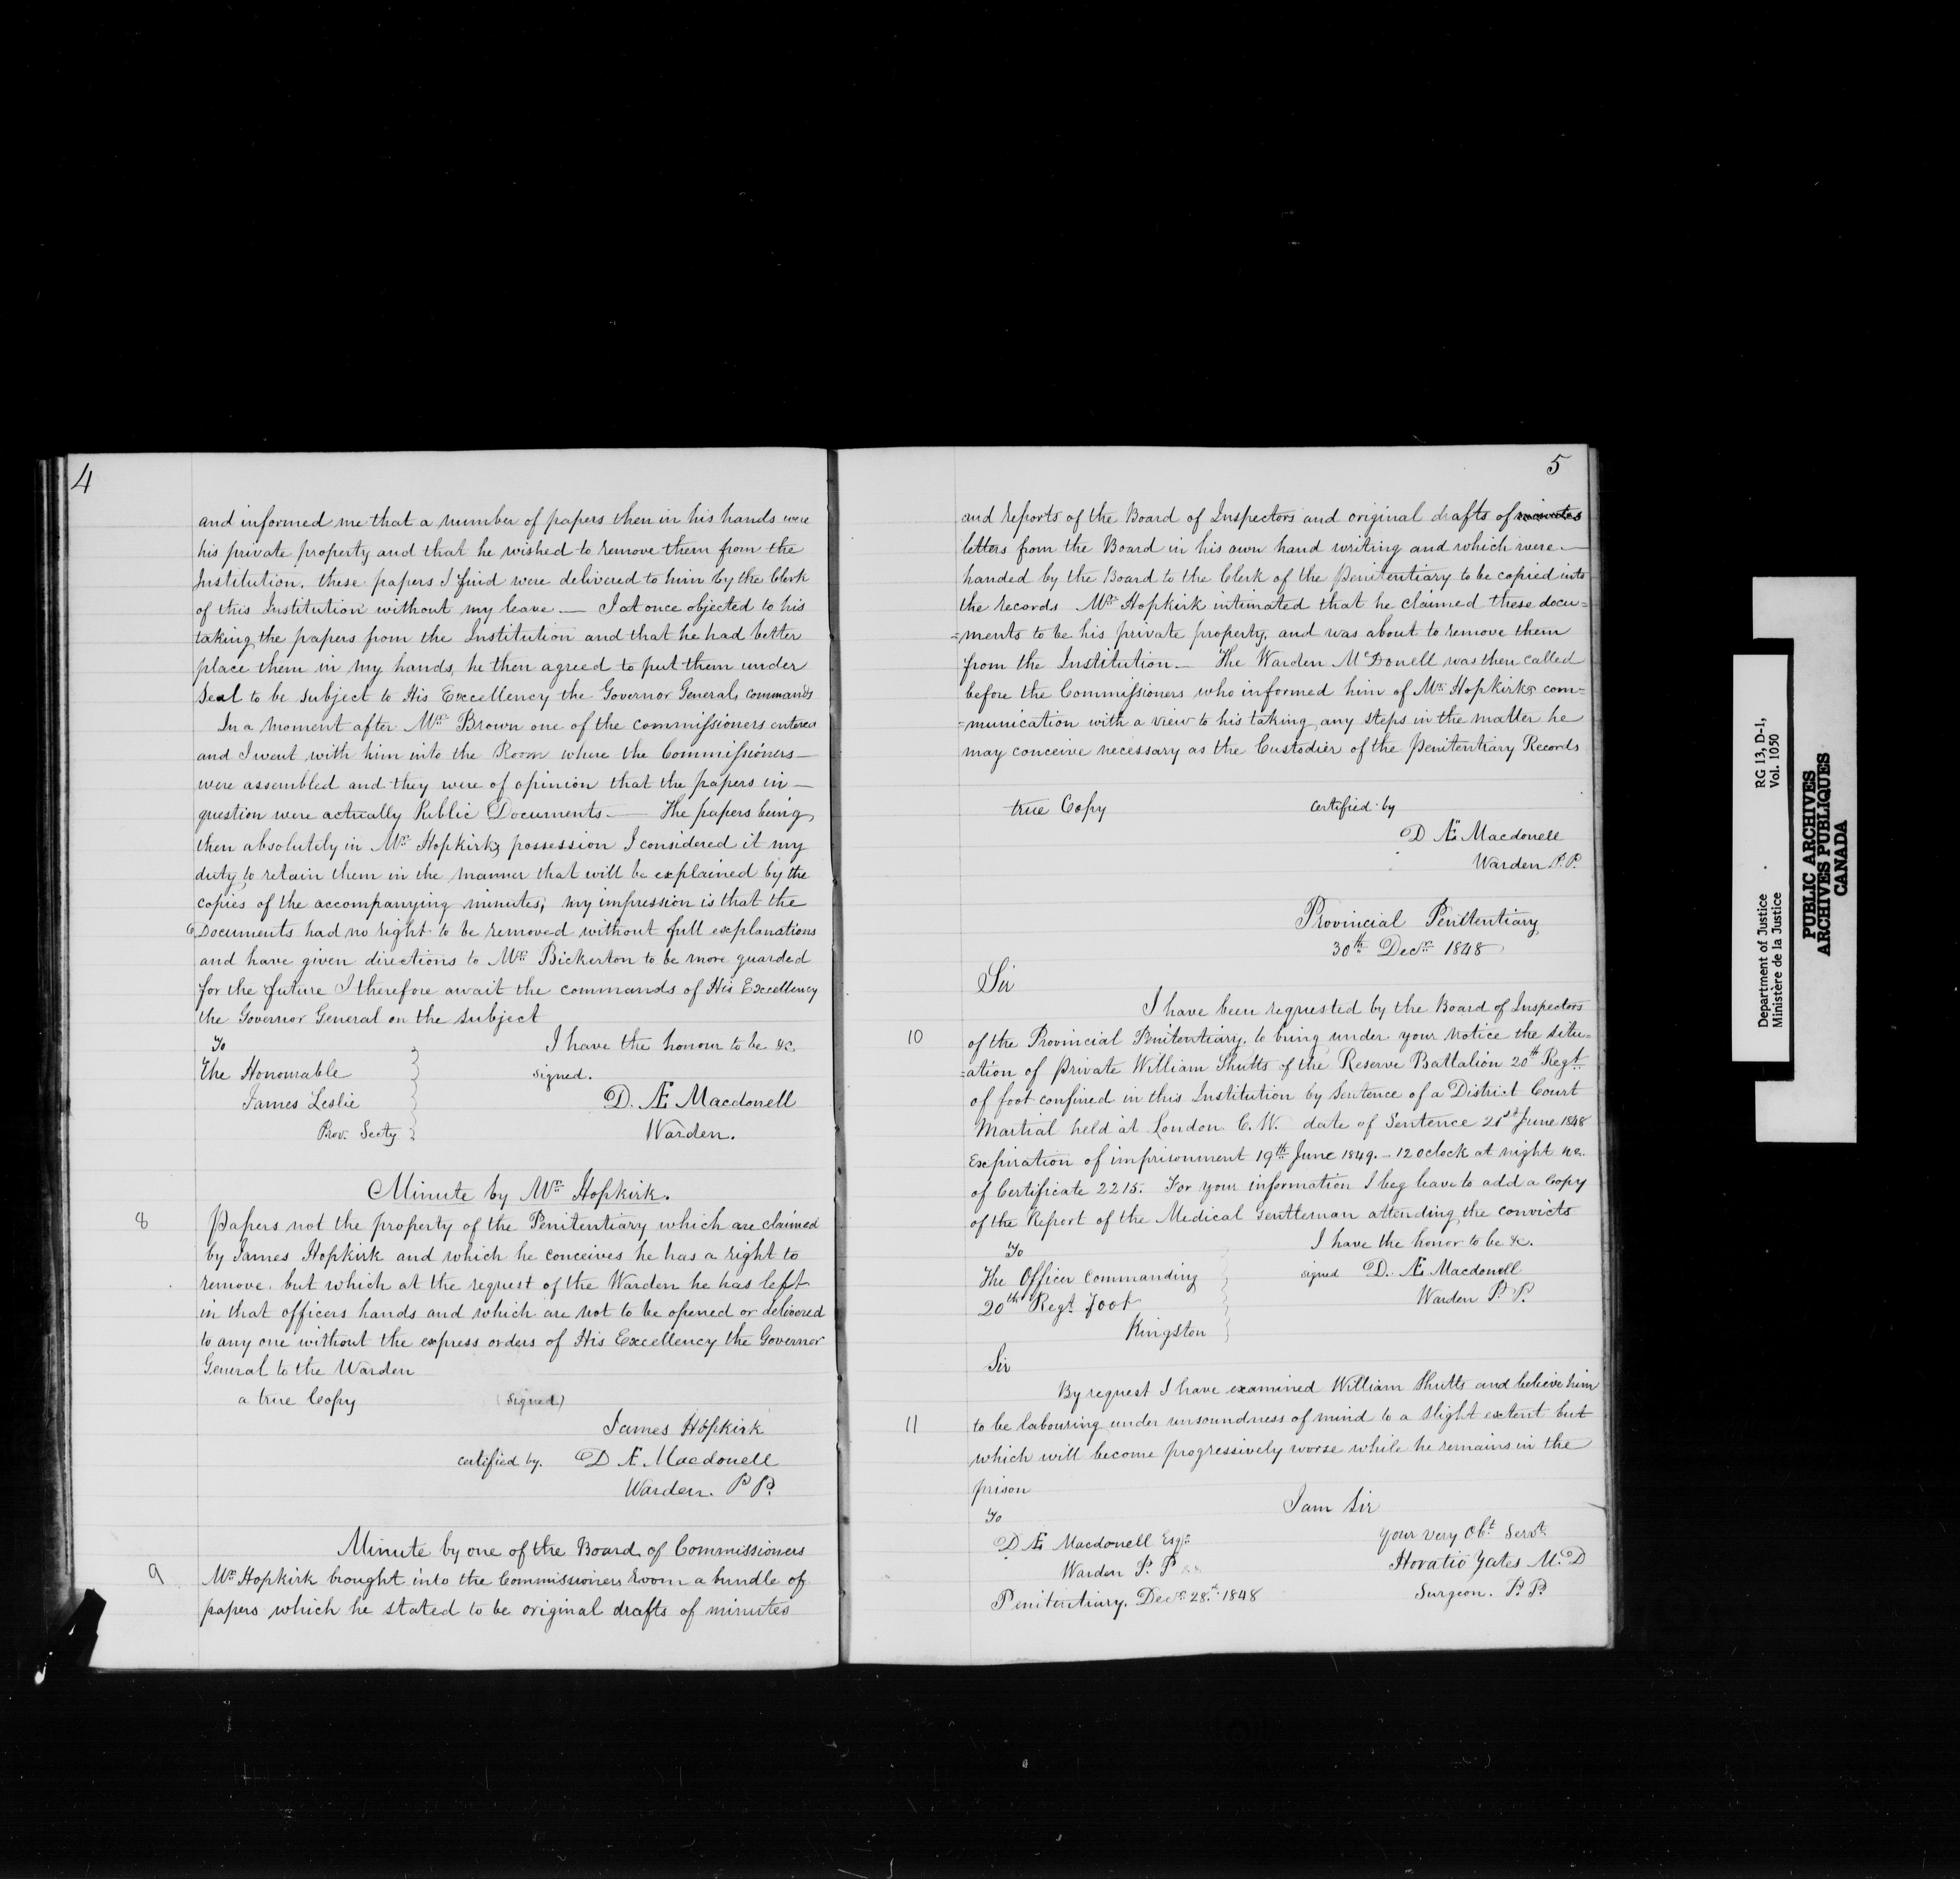 4
and informed me that a number of papers then in his hands were
his private property and that he wished to remove them from the
Institution. these papers I find were delivered to him by the Clerk
of this Institution without my leave — I at once objected to his
taking the papers from the Institution and that he had better
place them in my hands, he then agreed to put them under
Seal to be subject to His Excellency the Governor Generals commands
In a moment after Mr Brown one of the commissioners entered
and I went with him into the Room where the Commissioners —
were assembled and they were of opinion that the papers in —
question were actually Public Documents — The papers being
then absolutely in Mr Hopkirks possession I considered it my
duty to retain them in the manner that will be explained by the
copies of the accompanying minutes; my impression is that the
Documents had no right to be removed without full explanations
and have given directions to Mr Bickerton to be more guarded
for the future I therefore await the commands of His Excellency
the Governor General on the subject
To
I have the honour to be &c
The Honourable
signed.
James Leslie
D. Æ Macdonell
Prov. Secty
Warden.
Minute by Mr Hopkirk.
8
Papers not the property of the Penitentiary which are claimed
by James Hopkirk and which he conceives he has a right to
remove. but which at the request of the Warden he has left
in that officers hands and which are not to be opened or delivered
to any one without the express orders of His Excellency the Governor
General to the Warden
a true Copy
(signed)
James Hopkirk
certified by. D Æ Macdonell
Warden. P P.
Minute by one of the Board of Commissioners
9
Mr Hopkirk brought into the Commissioners Room a bundle of
papers which he stated to be original drafts of minutes
5
and reports of the Board of Inspectors and original drafts of minutes
letters from the Board in his own hand writing and which were —
handed by the Board to the Clerk of the Penitentiary to be copied into
the records Mr Hopkirk intimated that he claimed these docu=
=ments to be his private property, and was about to remove them
from the Institution — The Warden McDonell was then called
before the Commissioners who informed him of Mr Hopkirks com=
=munication with a view to his taking any steps in the matter he
may conceive necessary as the Custodier of the Penitentiary Records
true Copy
certified by
D Æ Macdonell
Warden P.P.
Provincial Penitentiary
30th Decr 1848
Sir
I have been requested by the Board of Inspectors
10
of the Provincial Penitentiary, to bring under your notice the situ=
=ation of Private William Shutts of the Reserve Battalion 20th Regt
of foot confined in this Institution by Sentence of a District Court
Martial held at London C.W. date of Sentence 21st June 1848
Expiration of imprisonment 19th June 1849. – 12 oclock at night No.
of Certificate 2215. For your information I beg leave to add a Copy
of the Report of the Medical Gentleman attending the convicts
To
I have the honor to be &c.
The Officer Commanding
signed D. Æ Macdonell
20th Regt Foot
Warden P. P.
Kingston
Sir
By request I have examined William Shutts and believe him
11
to be labouring under unsoundness of mind to a slight extent but
which will become progressively worse while he remains in the
prison
To
I am Sir
D Æ Macdonell Esqr
your very Obt Servt
Warden P. P
Horatio Yates M.D
Penitentiary. Decr 28th 1848
Surgeon. P. P.
Department of Justice
RG 13, D-1,
Ministère de la Justice
Vol. 1050
PUBLIC ARCHIVES
ARCHIVES PUBLIQUES
CANADA